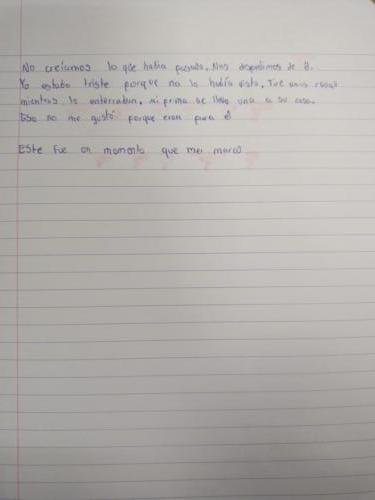 No creíamos lo que había pasado, Nos despedimos de él.
Yo estaba triste porque no lo había visto, Tire unas rosas
mientras lo enterraban, mi prima se llevo una a su casa.
Eso no me gustó porque eran para él
Este fue un momento que me marco